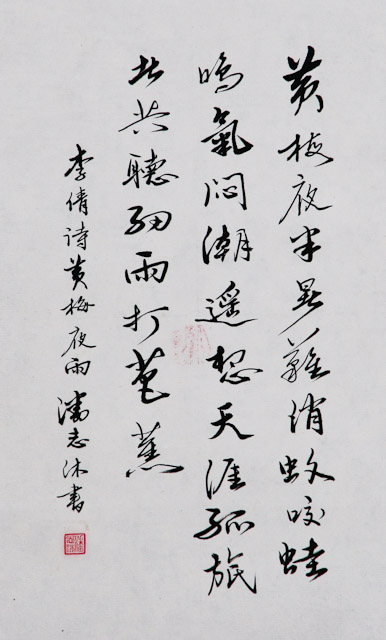 黄梅夜半暑難消蚊咬蛙
鳴氣闷潮遥想天涯孤旅
共聽細雨打芭蕉
李倩诗黄梅夜雨 潘志沐書